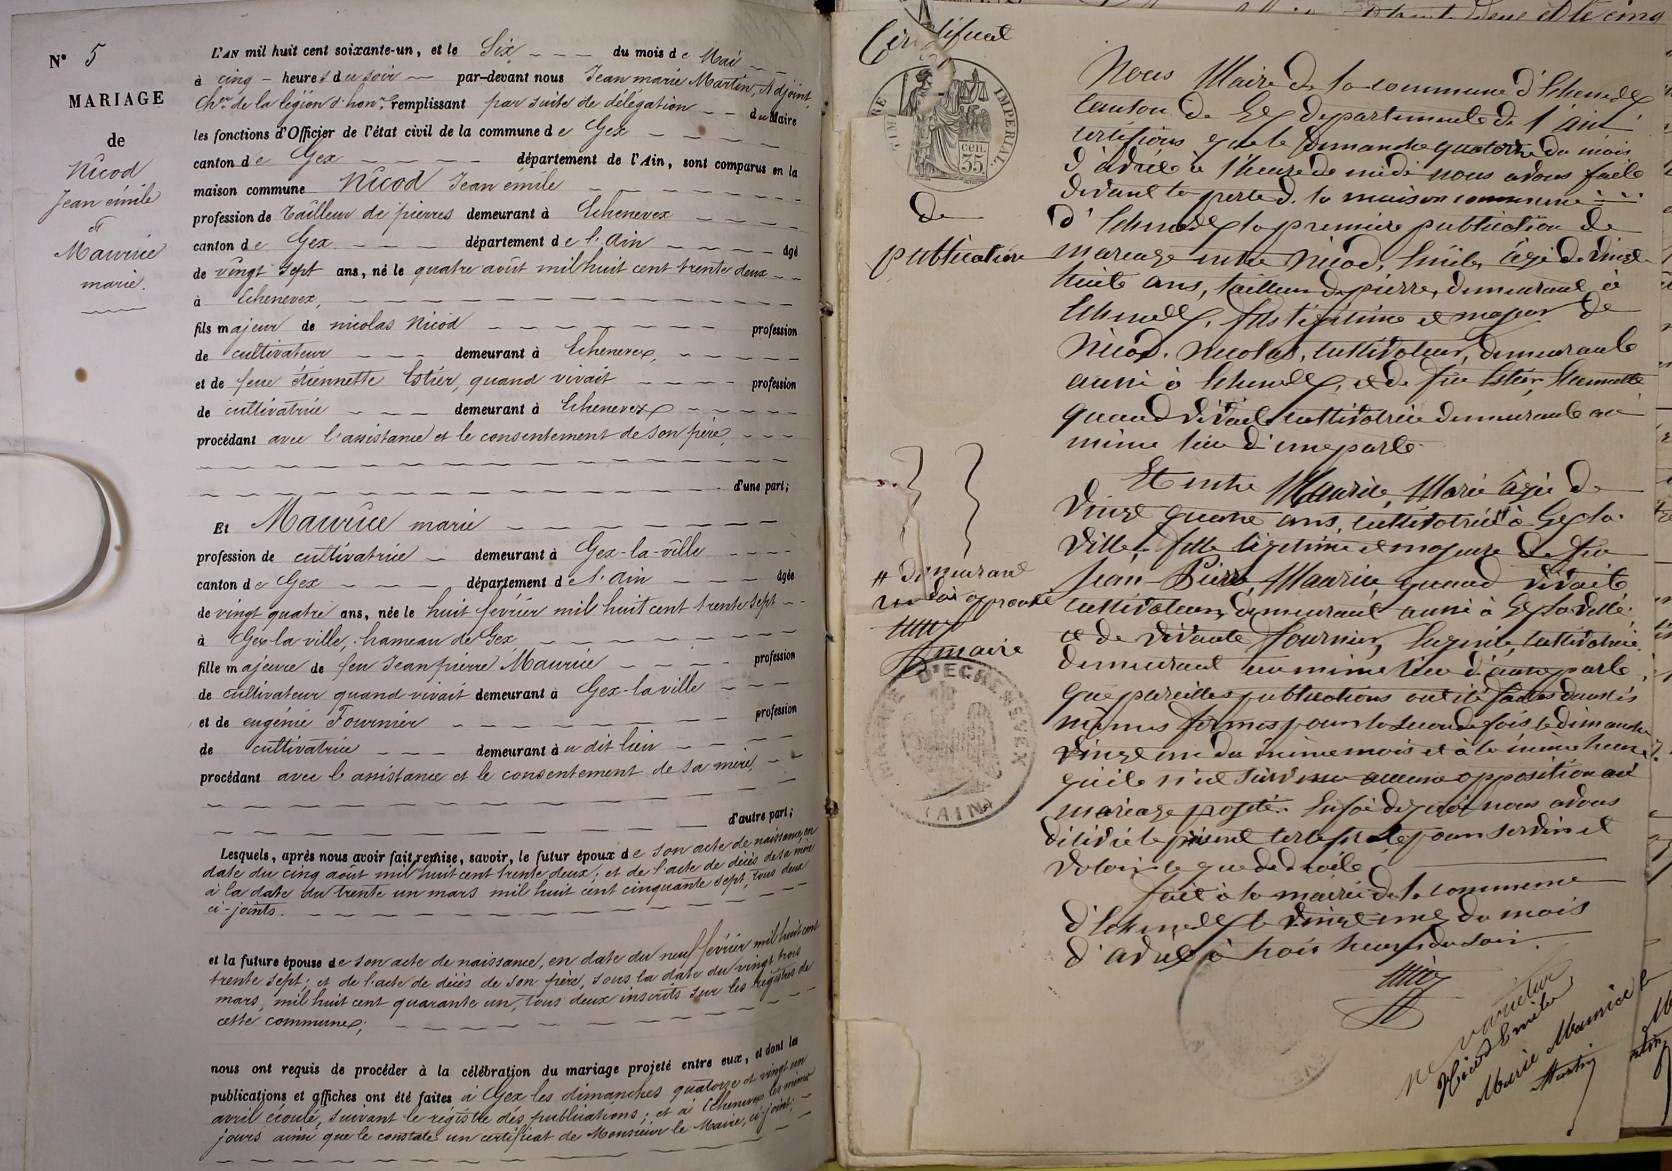 N° 5
MARIAGE
de
Nicod
Jean émile
et
Maurice
marie.
L'AN mil huit cent soixante-un, et le Six du mois de Mai
à cinq heures du soir par-devant nous Jean marie Martin, Adjoint
Chr de la légion d'honr, remplissant par suite de délégation du Maire
les fonctions d'Officier de l'état civil de la commune de Gex
canton de Gex département de l'Ain, sont comparus en la
maison commune Nicod Jean émile
profession de tailleur de pierres demeurant à Echenevex
canton de Gex département de l'Ain âgé
de vingt sept ans, né le quatre août mil huit cent trente deux
à Echenevex,
fils majeur de nicolas Nicod profession
de cultivateur demeurant à Echenevex,
et de feue étiennette Estier, quand vivait profession
de cultivatrice demeurant à Echenevex
procédant avec l'assistance et le consentement de son père,
d'une part;
Et Maurice marie
profession de cultivatrice demeurant à Gex-la-ville
canton de Gex département de l'Ain âgée
de vingt quatre ans, née le huit février mil huit cent trente sept
à Gex la ville, hameau de Gex,
fille majeure de feu Jean pierre Maurice profession
de cultivateur quand vivait demeurant à Gex-la ville
et de eugénie Fournier profession
de cultivatrice demeurant à u dit lieu
procédant avec l'assistance et le consentement de sa mère,
d'autre part;
Lesquels, après nous avoir fait remise, savoir, le futur époux de son acte de naissance, en
date du cinq août mil huit cent trente deux; et de l'acte de décès de sa mère
à la date du trente un mars mil huit cent cinquante sept, tous deux
ci-joints.
et la future épouse de son acte de naissance, en date du neuf février mil huit cent
trente sept; et de l'acte de décès de son père, sous la date du vingt trois
mars, mil huit cent quarante un, tous deux inscrits sur les registres de
cette commune;
nous ont requis de procéder à la célébration du mariage projeté entre eux, et dont les
publications et affiches ont été faites à Gex les dimanches quatorze et vingt un
avril écoulé, suivant le registre des publications; et à Echenevex les mêmes
jours ainsi que le constate un certificat de Monsieur le Maire, ci-joint;
Certificat
TIMBRE IMPERIAL.
35 cen.
de
publication
Nous Maire de la commune d'Echenevex
canton de Gex département de l'ain
certifions que le Dimanche quatorze du mois
d'avril à l'heure de midi nous avons faite
devant la porte de la maison commune
d'Echenevex la première publication de
mariage entre Nicod, Emile, âgé de vingt
huit ans, tailleur de pierre, demeurant à
Echenevex, fils légitime et majeur de
Nicod, Nicolas, cultivateur, demeurant
aussi à Echenevex, et de feu Estier, Etiennette
quand vivait cultivatrice demeurant au
même lieu d'une part.
Et entre Maurice, Marie âgée de
vingt quatre ans, cultivatrice # à Gex la
ville fille légitime et majeure de feu
Jean Pierre Maurice, quand vivait
cultivateur, demeurant aussi à Gex la ville,
et de vivante Fournier, Eugénie, cultivatrice
demeurant au même lieu d'autre part,
que pareilles publications ont été faites dans les
mêmes formes pour la seconde fois le dimanche
vingt un du même mois et à la même heure,
qu'il n'est survenu aucune opposition au
mariage projeté. En foi de quoi nous avons
délivré le présent certificat pour servir et
valoir ce que de droit.
Fait à la mairie de la commune
d'Echenevex le vingt un du mois
d'avril à trois heures du soir.
# demeurant
approuvé
maire
MAIRIE D'ECHENEVEX
(AIN)
ne varietur
Nicod Emile
Marie Maurice
Martin